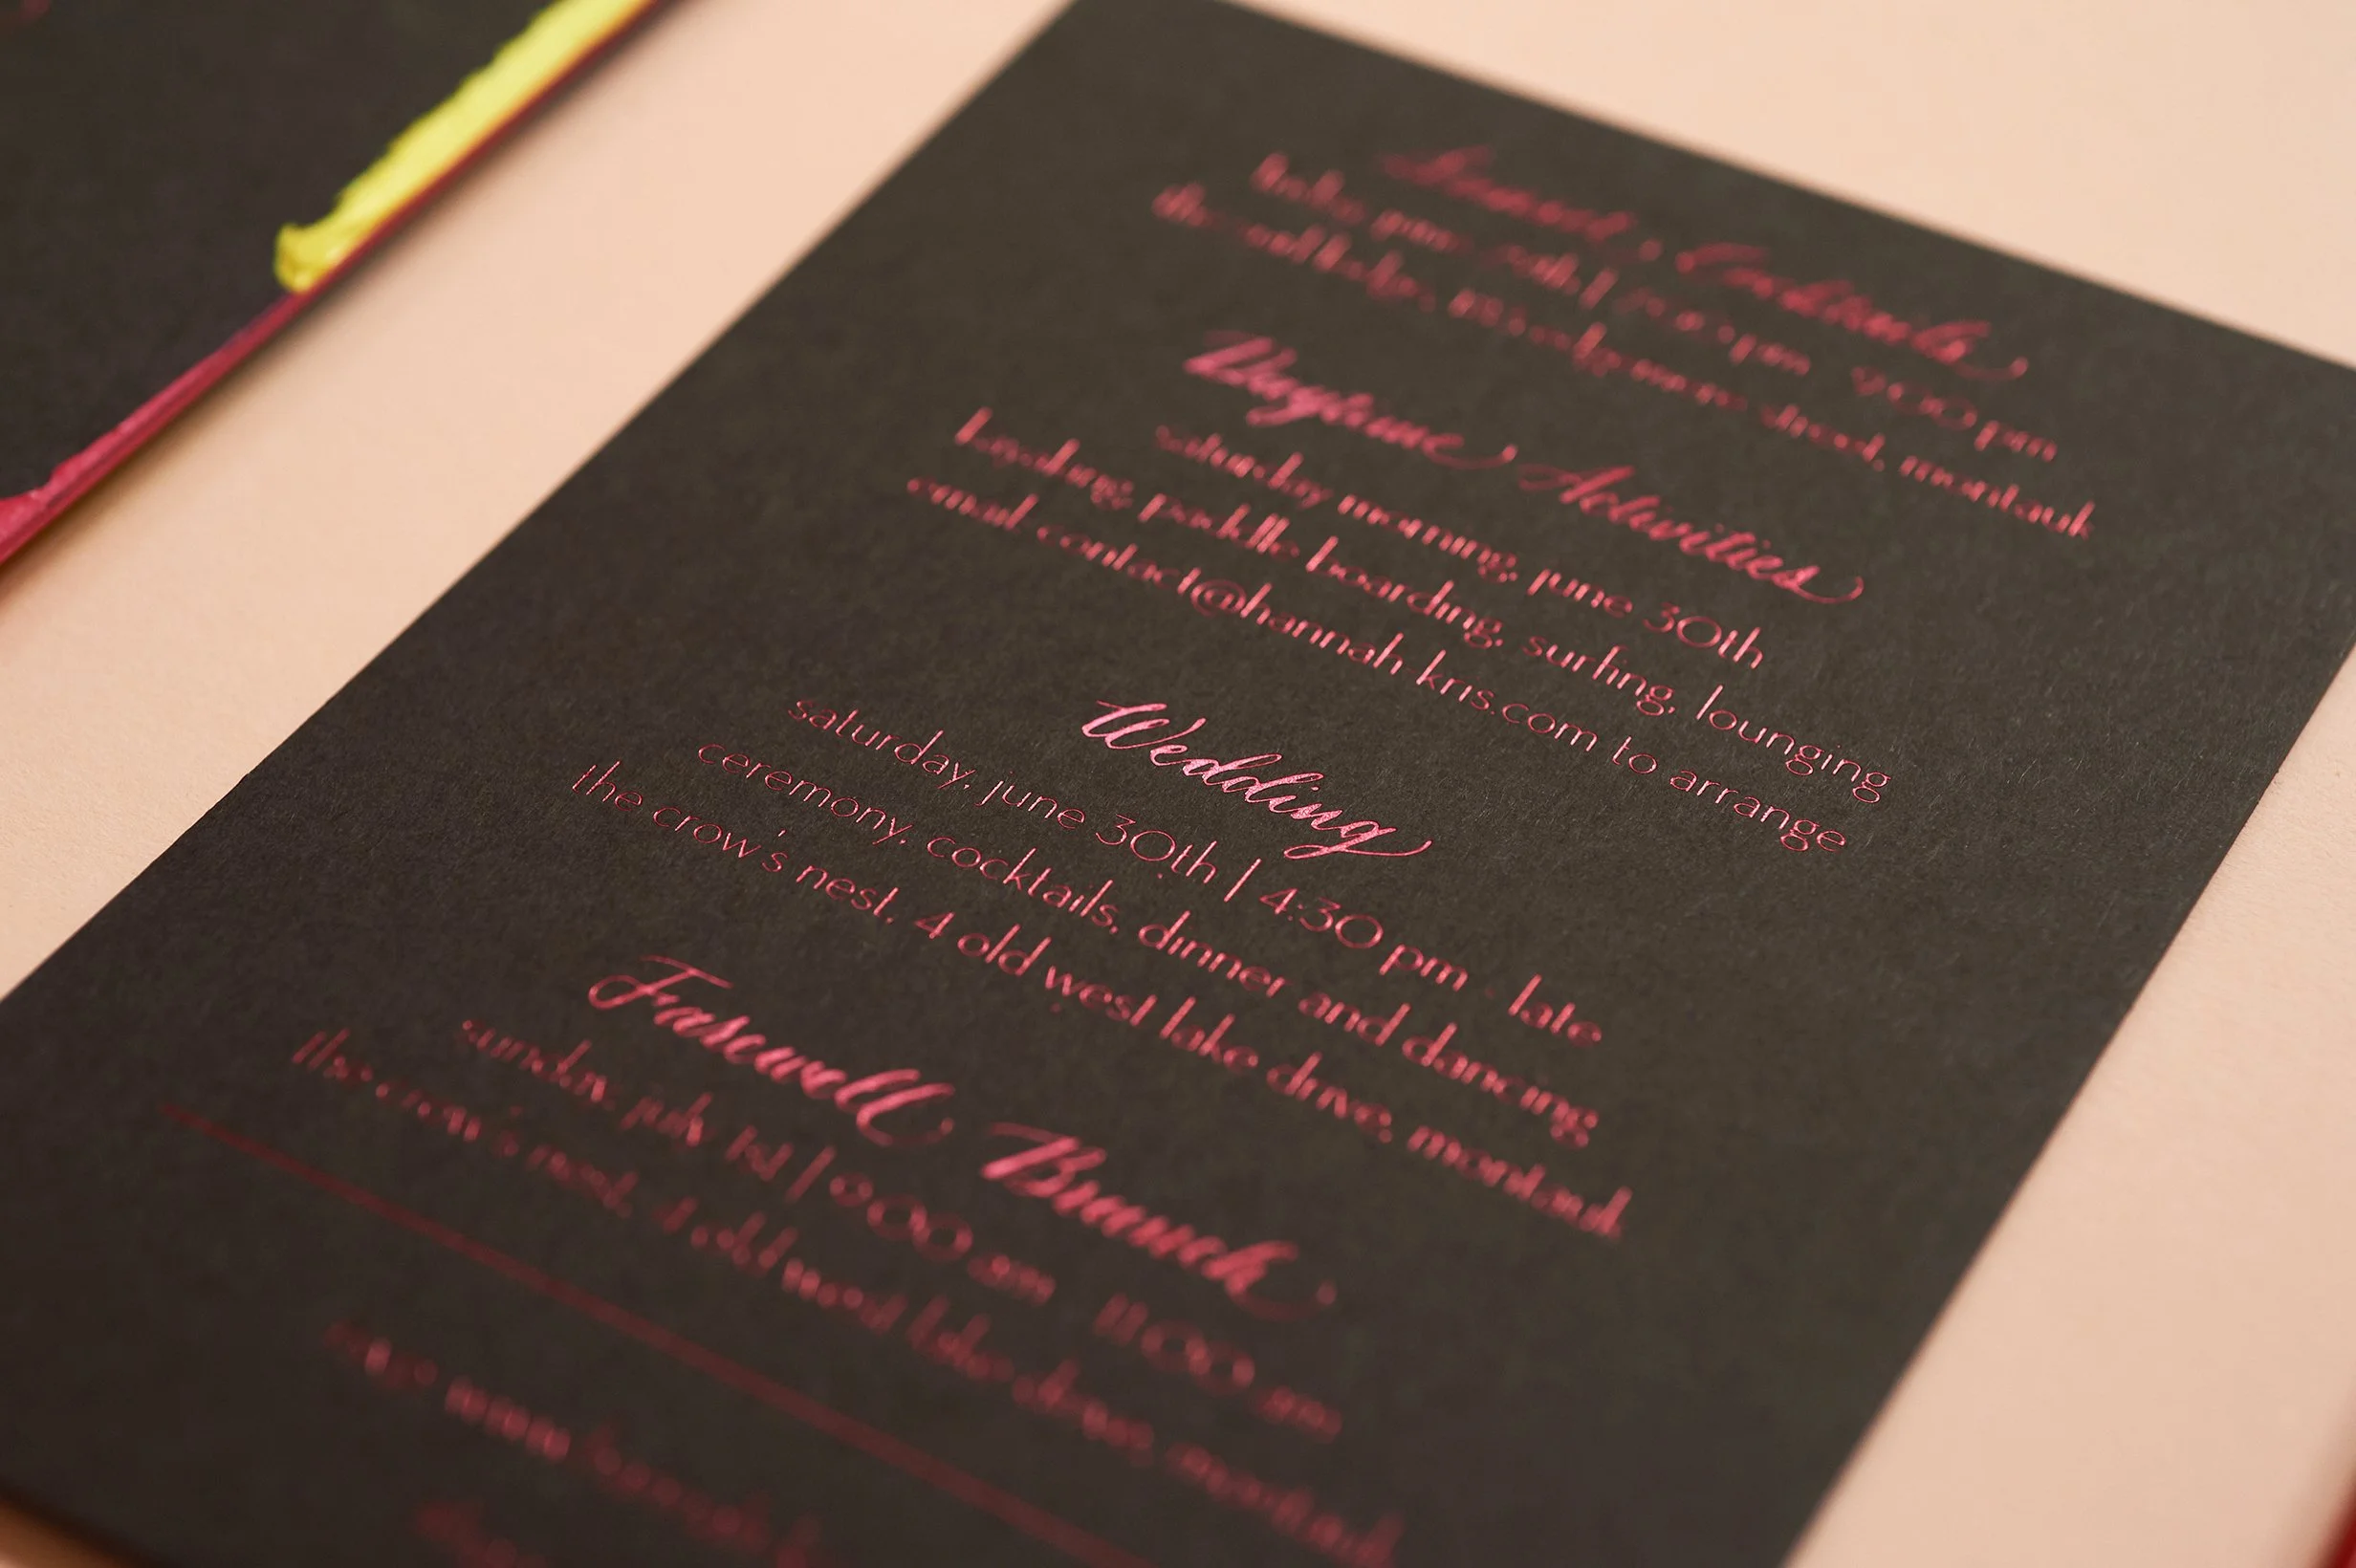 Sunset Cocktails
friday, june 29th | 7:00 pm 9:00 pm
the surf lodge, 183 edgemere street, montauk
Daytime Activities
saturday morning, june 30th
kayaking, paddle boarding, surfing, lounging
email contact@hannah-kris.com to arrange
Wedding
saturday, june 30th | 4:30 pm - late
ceremony, cocktails, dinner and dancing
the crow's nest, 4 old west lake drive, montauk
Farewell Brunch
sunday, july 1st | 9:00 am 11:00 am
the crow's nest, 4 old west lake drive, montauk